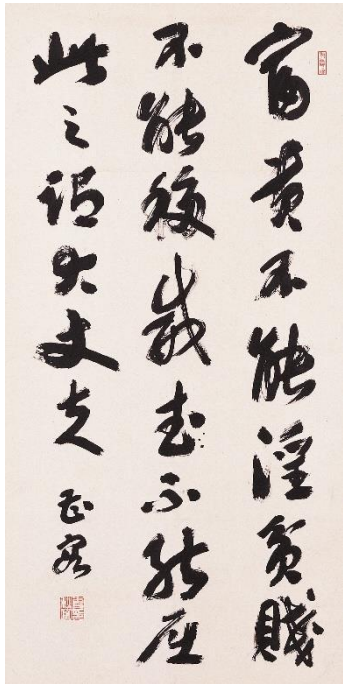 富貴不能淫貧賤
不能移威武不能屈
此之謂大丈夫